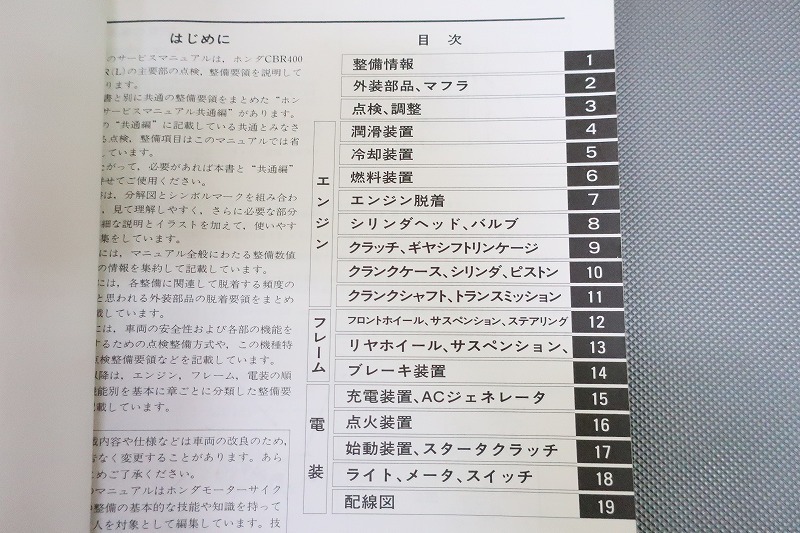 はじめに
のサービスマニュアルは，ホンダCBR400
R(L)の主要部の点検，整備要領を説明して
ります。
書と別に共通の整備要領をまとめた“ホン
サービスマニュアル共通編”があります。
の“共通編”に記載している共通とみなさ
る点検，整備項目はこのマニュアルでは省
しています。
たがって，必要があれば本書と“共通編”
併せてご使用ください。
は，分解図とシンボルマークを組み合わ
，見て理解しやすく，さらに必要な部分
細な説明とイラストを加えて，使いやす
集をしています。
には，マニュアル全般にわたる整備数値
の情報を集約して記載しています。
には，各整備に関連して脱着する頻度の
と思われる外装部品の脱着要領をまとめ
載しています。
には，車両の安全性および各部の機能を
するための点検整備方式や，この機種特
点検整備要領などを記載しています。
以降は，エンジン，フレーム，電装の順
能別を基本に章ごとに分類した整備要
記載しています。
載内容や仕様などは車両の改良のため，
告なく変更することがあります。あら
じめご了承ください。
のマニュアルはホンダモーターサイク
整備の基本的な技能や知識を持って
人を対象として編集しています。技
目 次
整備情報 1
外装部品、マフラ 2
点検、調整 3
エンジン
潤滑装置 4
冷却装置 5
燃料装置 6
エンジン脱着 7
シリンダヘッド、バルブ 8
クラッチ、ギヤシフトリンケージ 9
クランクケース、シリンダ、ピストン 10
クランクシャフト、トランスミッション 11
フレーム
フロントホイール、サスペンション、ステアリング 12
リヤホイール、サスペンション、 13
ブレーキ装置 14
電装
充電装置、ACジェネレータ 15
点火装置 16
始動装置、スタータクラッチ 17
ライト、メータ、スイッチ 18
配線図 19